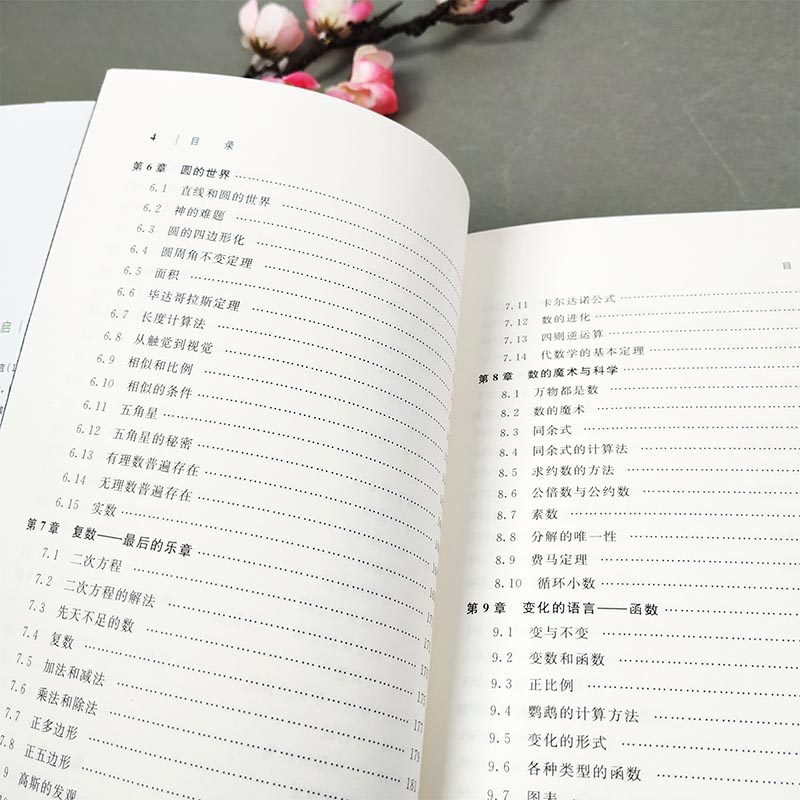 启
4 | 目 录
第6章 圆的世界
6.1 直线和圆的世界
6.2 神的难题
6.3 圆的四边形化
6.4 圆周角不变定理
6.5 面积
6.6 毕达哥拉斯定理
6.7 长度计算法
6.8 从触觉到视觉
6.9 相似和比例
6.10 相似的条件
6.11 五角星
6.12 五角星的秘密
6.13 有理数普遍存在
6.14 无理数普遍存在
6.15 实数
第7章 复数——最后的乐章
7.1 二次方程
7.2 二次方程的解法
7.3 先天不足的数
7.4 复数
7.5 加法和减法
7.6 乘法和除法
7.7 正多边形 179
7.8 正五边形 181
9 高斯的发现
目
7.11 卡尔达诺公式
7.12 数的进化
7.13 四则逆运算
7.14 代数学的基本定理
第8章 数的魔术与科学
8.1 万物都是数
8.2 数的魔术
8.3 同余式
8.4 同余式的计算法
8.5 求约数的方法
8.6 公倍数与公约数
8.7 素数
8.8 分解的唯一性
8.9 费马定理
8.10 循环小数
第9章 变化的语言——函数
9.1 变与不变
9.2 变数和函数
9.3 正比例
9.4 鹦鹉的计算方法
9.5 变化的形式
9.6 各种类型的函数
9.7 图表